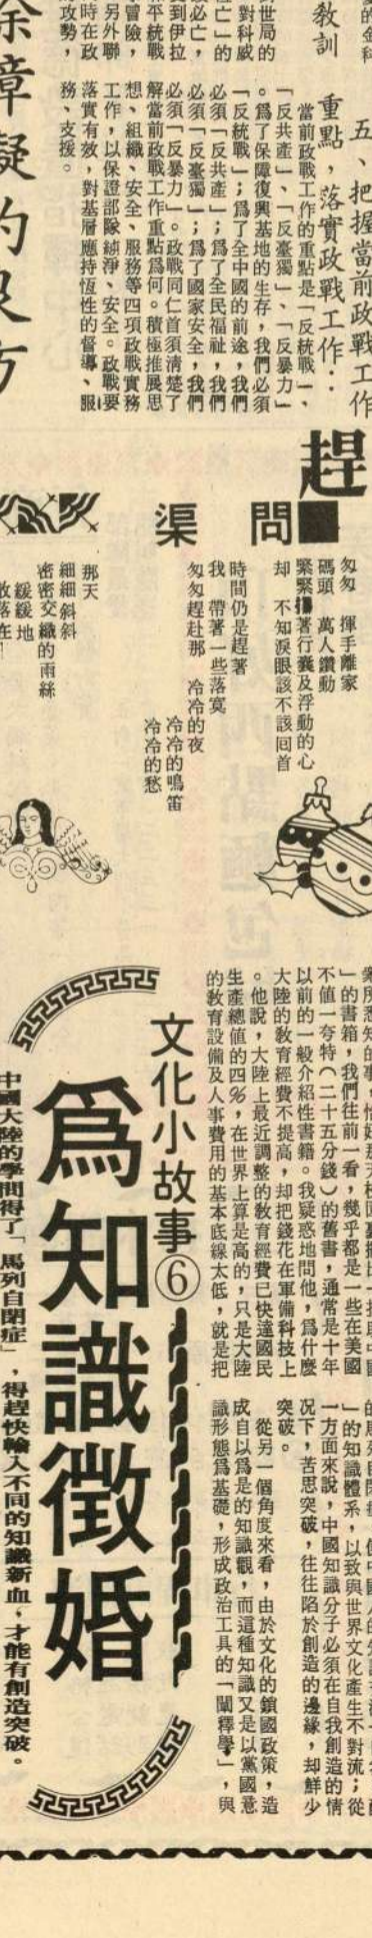 教訓
五、把握當前政戰工作
重點，落實政戰工作：
當前政戰工作的重點是「反統戰」、
「反共產」、「反臺獨」、「反暴力」
。爲了保障復興基地的生存，我們必須
「反統戰」；爲了全中國的前途，我們
必須「反共產」；爲了全民福祉，我們
必須「反臺獨」；爲了國家安全，我們
必須「反暴力」。政戰同仁首須清楚了
解當前政戰工作重點爲何。積極推展思
想、組織、安全、服務等四項政戰實務
工作，以保證部隊純淨、安全。政戰要
落實有效，對基層應持恆性的督導、服
務、支援。
趕
問渠
匆匆　揮手離家
碼頭　萬人鑽動
緊緊著行囊及浮動的心
却　不知淚眼該不該回首
時間仍是趕著
我　帶著一些落寞
匆匆趕赴那　冷冷的夜
冷冷的鳴笛
冷冷的愁
那天
細細斜斜
密密交織的雨絲
緩緩地
」的書箱，我們往前一看，幾乎都是一些在美國
不值一夸特（二十五分錢）的舊書，通常是十年
以前的一般介紹性書籍。我疑惑地問他，爲什麼
大陸的教育經費不提高，却把錢花在軍備科技上
。他說，大陸上最近調整的教育經費已快達國民
生產總值的四％，在世界上算是高的，只是大陸
的教育設備及人事費用的基本底線太低，就是把
」的知識體系，以致與世界文化產生不對流；從
一方面來說，中國知識分子必須在自我創造的情
況下，苦思突破，往往陷於創造的邊緣，却鮮少
突破。
從另一個角度來看，由於文化的鎖國政策，造
成自以爲是的知識觀，而這種知識又是以黨國意
識形態爲基礎，形成政治工具的「闡釋學」，與
文化小故事⑥
爲知識徵婚
中國大陸的學問得了「馬列自閉症」，得趕快輸入不同的知識新血，才能有創造突破。